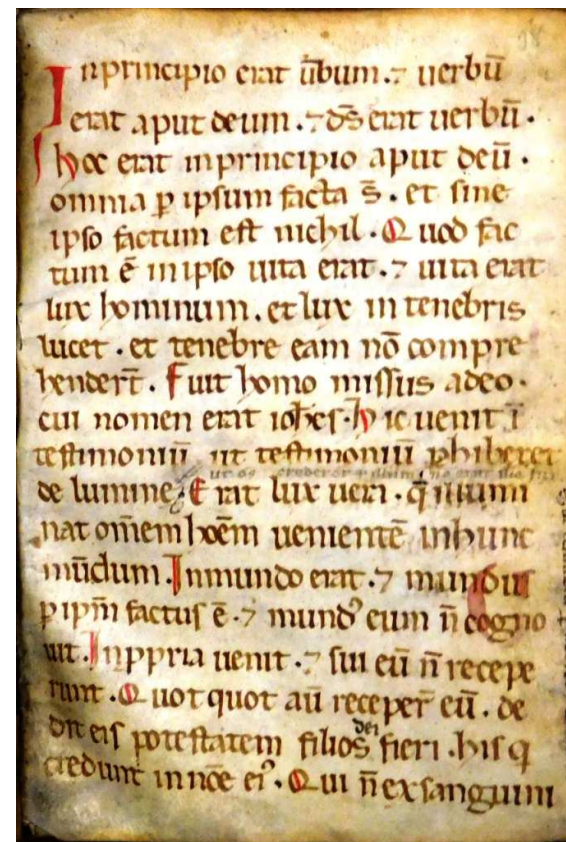 Inprincipio erat ūbum. ⁊ uerbū
erat aput deum. ⁊ dꝰs erat uerbū.
hoc erat inprincipio aput deū.
omnia ꝑ ipsum facta s̄. et sine
ipso factum est nichil. Quod fac
tum ē in ipso uita erat. ⁊ uita erat
lux hominum. et lux in tenebris
lucet. et tenebre eam nō compre
hendert̄. Fuit homo missus adeo.
cui nomen erat ioh̄es. hic uenit ī
testimoniū ut testimoniū ꝑhiberet
ut oēs crederēt ꝑ illum nō erat ille lux
de lumine. Erat lux uera. q̄ illumi
nat om̄em hoēm uenientē inhunc
mūdum. Inmundo erat. ⁊ mundus
ꝑ ipm̄ factus ē. ⁊ mundꝰ eum n̄ cogno
uit. Inppria uenit. ⁊ sui eū n̄ recepe
runt. Quotquot aū receper̄ eū. de
dit eis potestatem filios dei fieri. his q
credunt in noēe eiꝰ. Qui n̄ ex sanguini